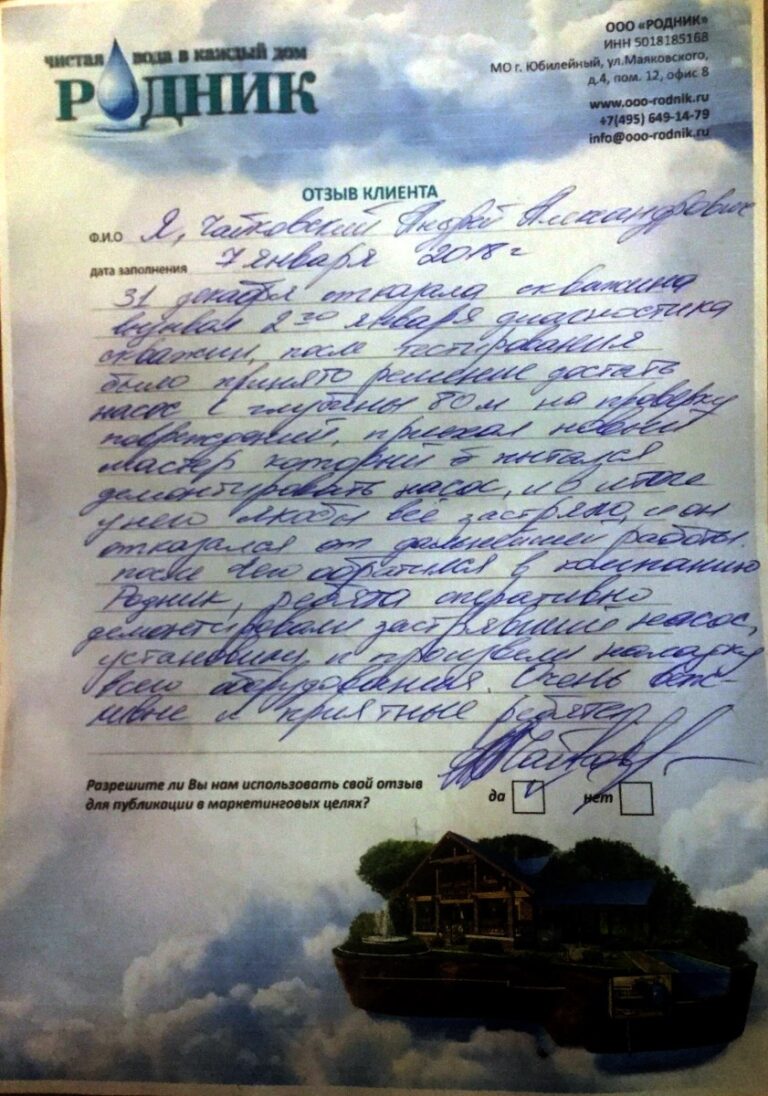 чистая вода в каждый дом
РОДНИК
ООО «РОДНИК»
ИНН 5018185168
МО г. Юбилейный, ул.Маяковского,
д.4, пом. 12, офис 8
www.ooo-rodnik.ru
+7(495) 649-14-79
info@ooo-rodnik.ru
ОТЗЫВ КЛИЕНТА
Ф.И.О Я, Чайковский Андрей Александрович
дата заполнения 7 января 2018 г
31 декабря отказала скважина
вызвал 2го января диагностика
скважин, после тестирования
было принято решение достать
насос с глубины 80 м на проверку
повреждений, приехал новый
мастер который пытался
демонтировать насос, и в итоге
у него якобы все застряло, и он
отказался от дальнейшей работы.
после чего обратился в компанию
Родник, ребята оперативно
демонтировали застрявший насос,
установили и произвели наладку
всего оборудования. Очень веж-
ливые и приятные ребята
Разрешите ли Вы нам использовать свой отзыв
для публикации в маркетинговых целях?
да нет